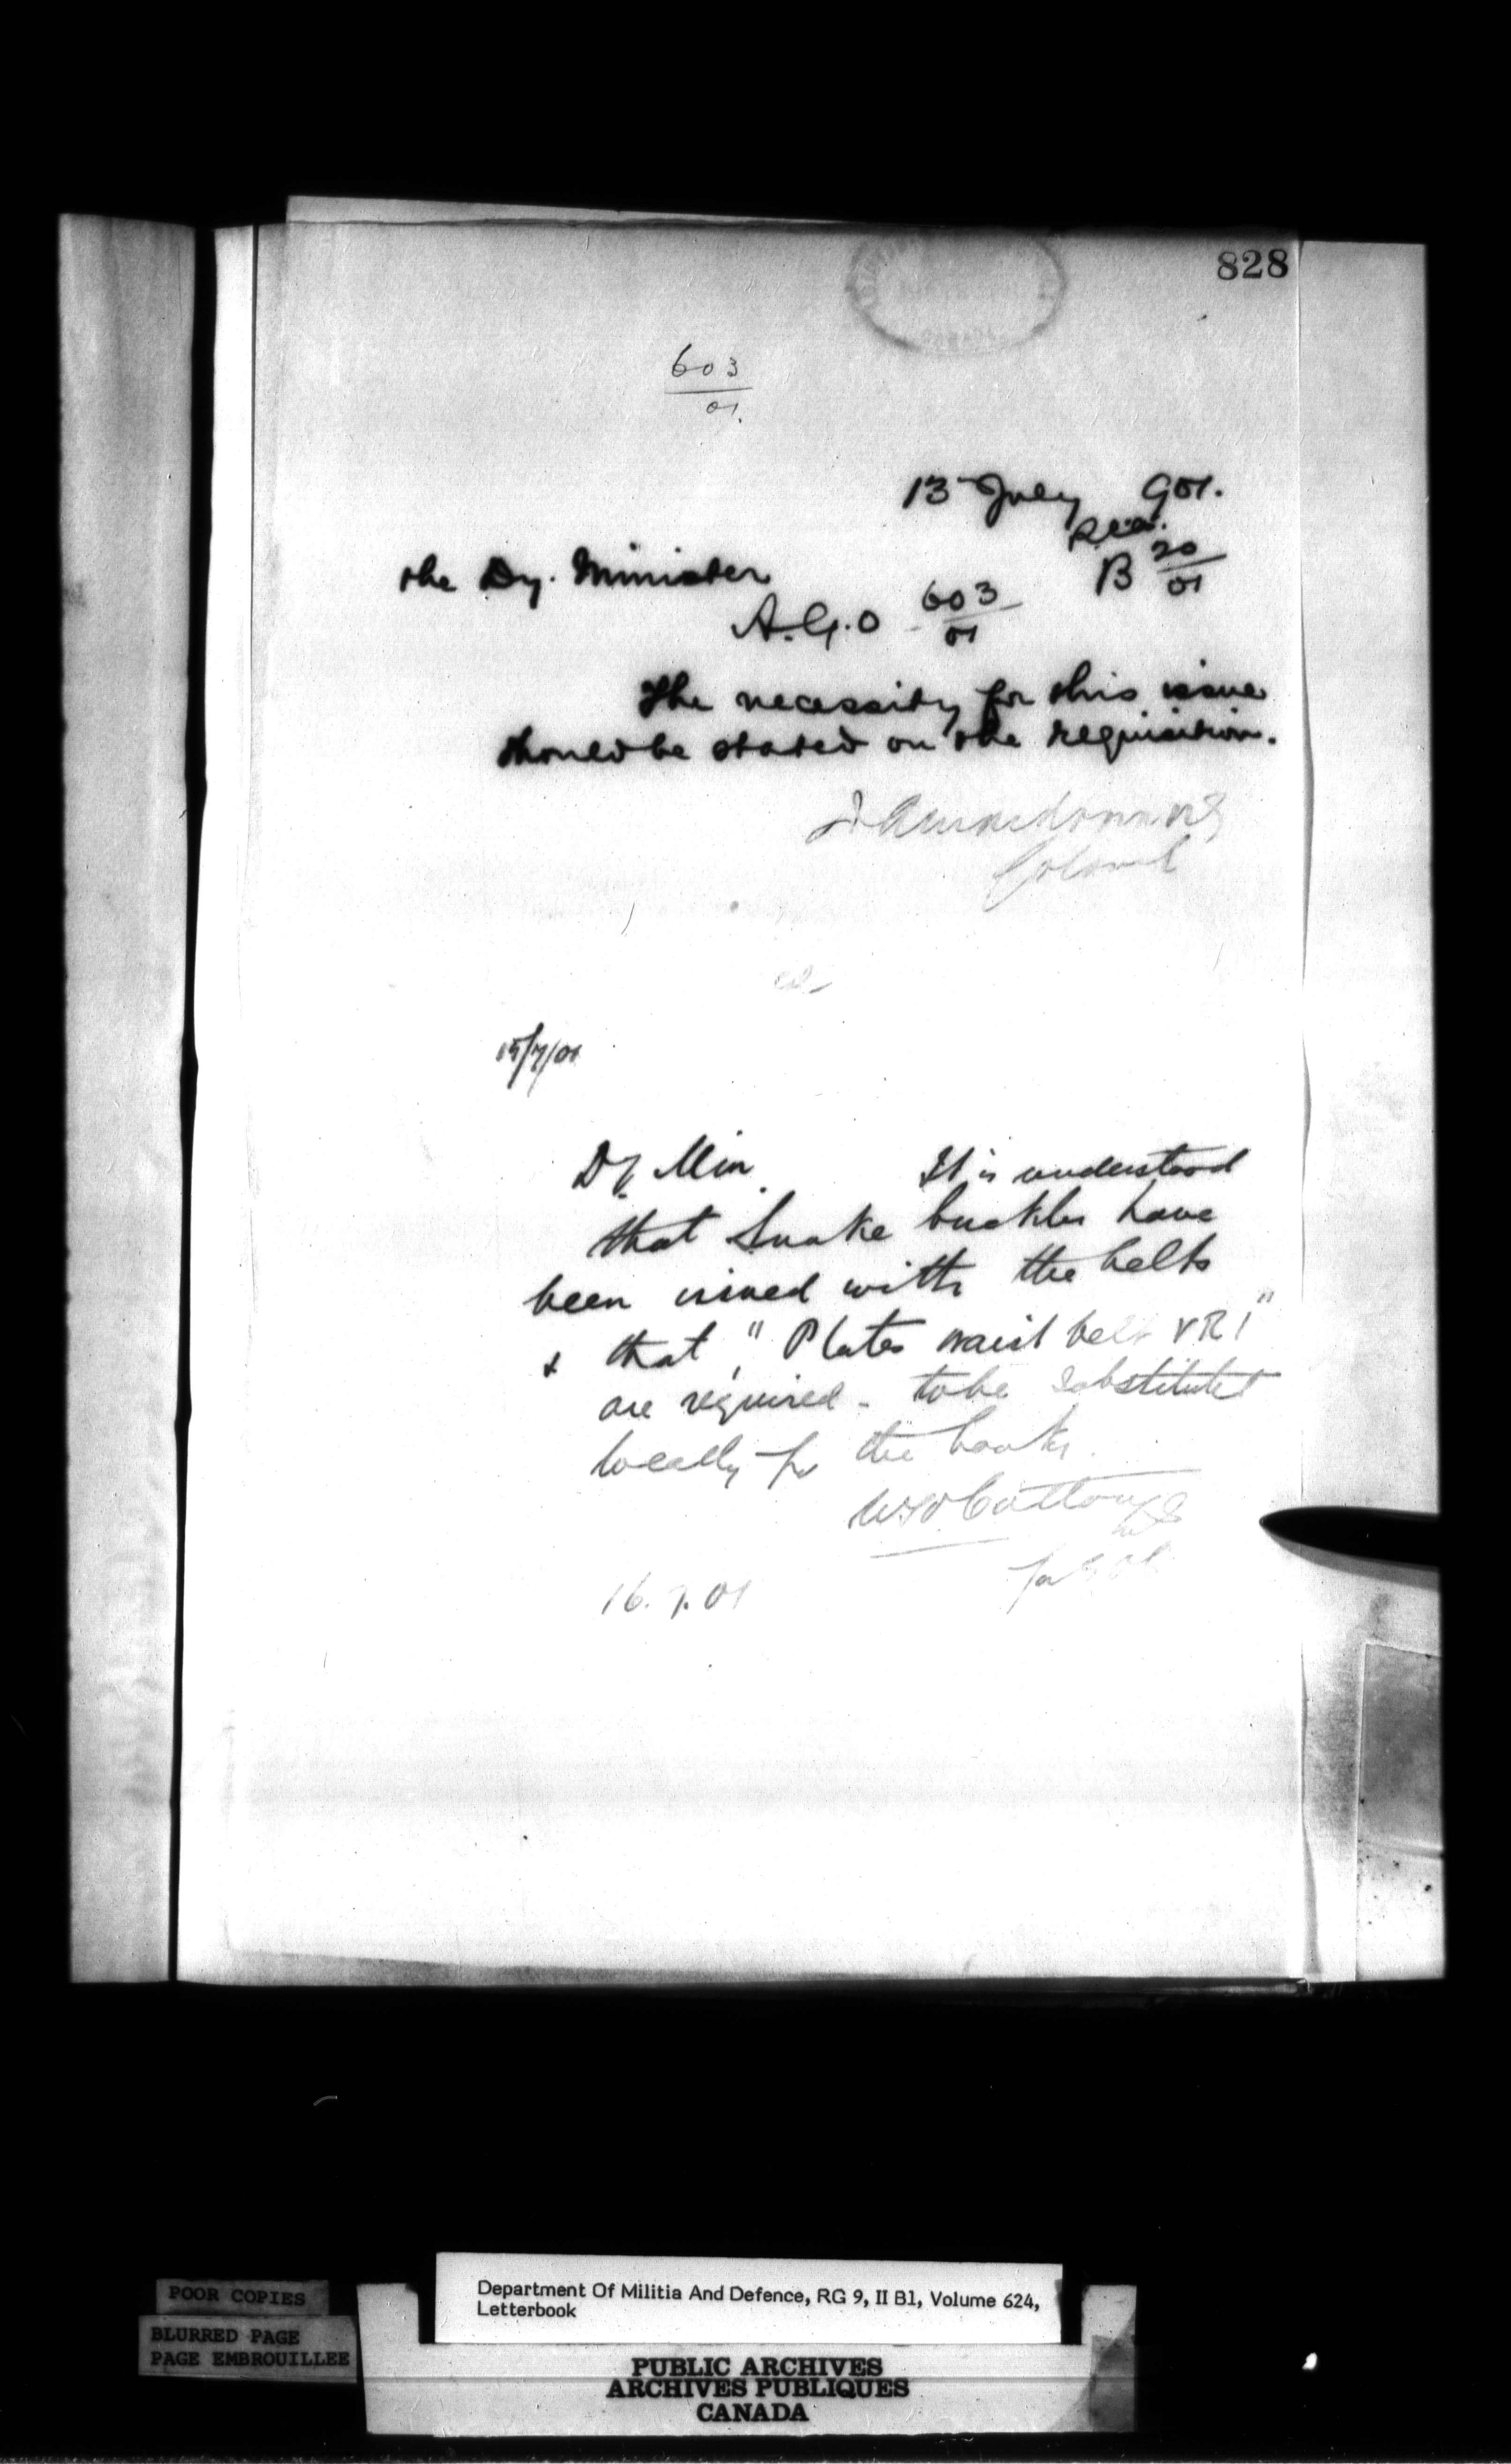 828
603
01.
13 July 901.
B 20
01
the Dy. Minister
A.G.O 603
01
The necessity for this issue
should be stated on the requisition.
Colonel
15/7/01
Dy. Min. It is understood
that Snake buckles have
been issued with the belts
& that "Plates waist belt VRI"
are required - to be substituted
locally for the hooks.
16.7.01
POOR COPIES
BLURRED PAGE
PAGE EMBROUILLEE
Department Of Militia And Defence, RG 9, II B1, Volume 624,
Letterbook
PUBLIC ARCHIVES
ARCHIVES PUBLIQUES
CANADA